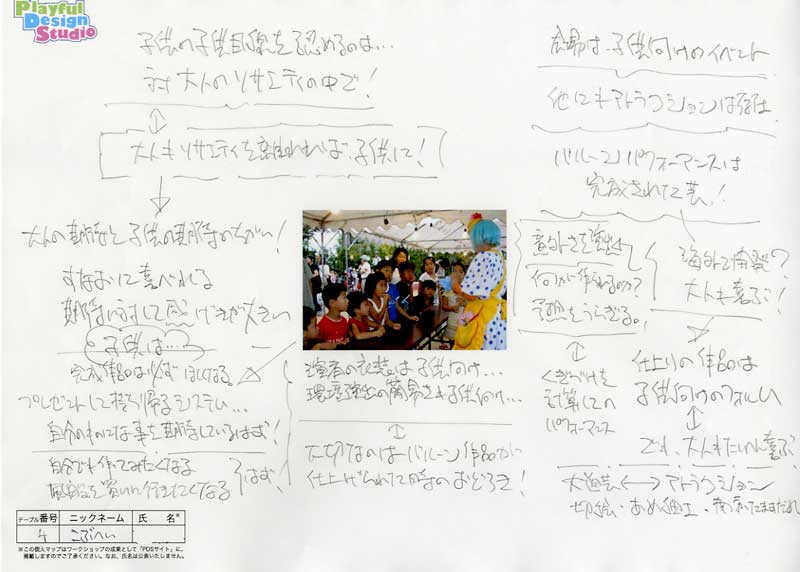 Playful
Design
Studio
子供の子供目線を認めるのは…
対大人のリサエティの中で!
大人もリサエティを離れれば子供に!
大人の期待と子供の期待のちがい!
すなおに喜べれる
期待に対して感げきが大きい
子供は…?
完成作品は必ずほしくなる
プレゼントして持ち帰るシステム…
自分のものになる事を期待しているはず!
自分でも作ってみたくなる
風船を買いに行きたくなる
はず!
会場は子供向けのイベント
他にもアトラクションは
バルーンパフォーマンスは
完成されて芸!
意外さを演出
何が作れるのか?
予想をうらぎる。
海外で開発?
大人も喜ぶ!
演者の衣装は子供向け…
環境演出の簡易さも子供向け…
大切なのはバルーン作品が
仕上げられて時のおどろき!
くぎづけを
計算しての
パフォーマンス
仕上りの作品は
子供向けのフォルム
でも、大人もたいへん喜ぶ
大道芸 ←→ アトラクション
切絵・あめ細工・
テーブル番号 ニックネーム 氏 名*
4 こぶへい
※この個人マップはワークショップの成果として「PDSサイト」に、
掲載しますのでご了承ください。なお、氏名は公表いたしません。